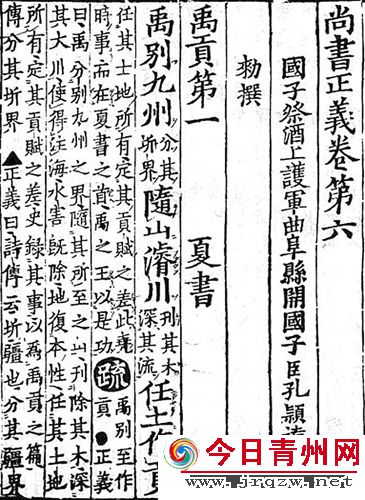 尚書正義卷第六
國子祭酒上護軍曲阜縣開國子臣孔穎
勑撰
禹貢第一 夏書
禹别九州 分其圻界 隨山濬川 刊其木深其流 任土作貢
任其土地所有定其貢賦之差此堯
時事而在夏書之首禹之王以是功 疏 禹别至作貢●正義
曰禹分别九州之界隨其所至之山刊除其木深
其大川使得注海水害既除地復本性任其土地
所有定其貢賦之差史錄其事以為禹貢之篇
傳分其圻界▲正義曰詩傳云圻疆也分其疆界
今日青州网
www.jrqzw.net